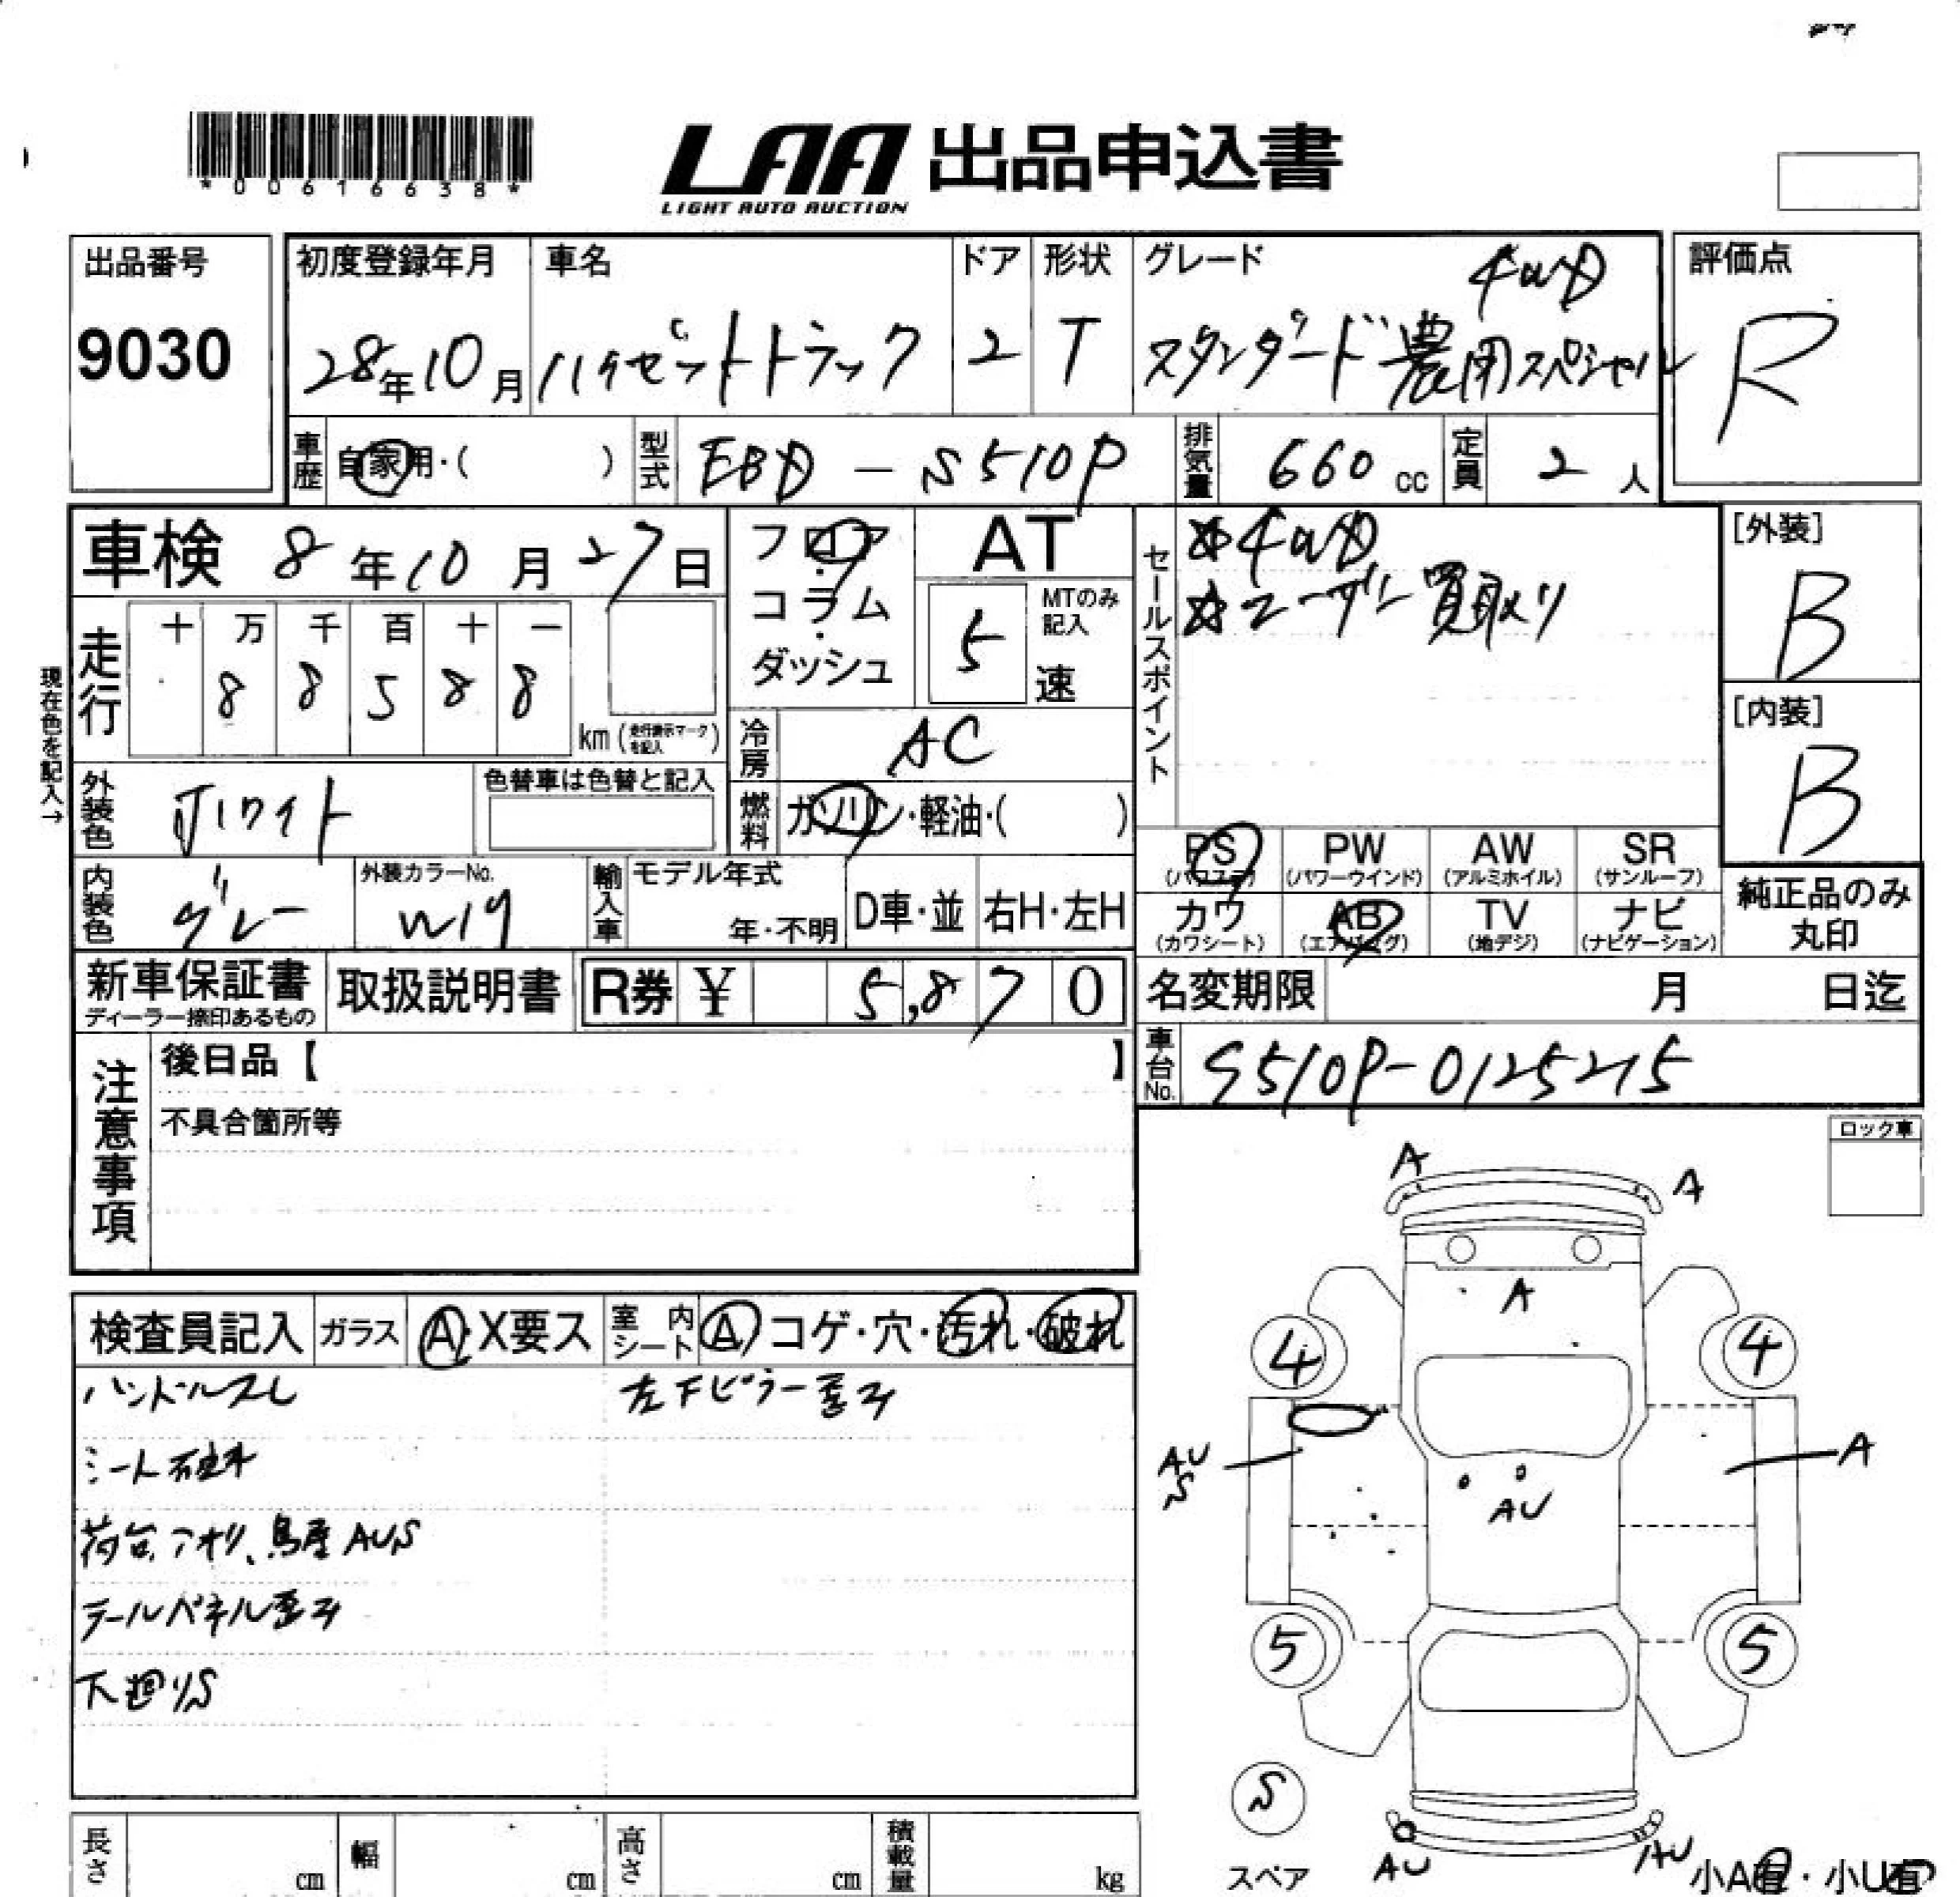 *00616638*
LAA 出品申込書
LIGHT AUTO AUCTION
出品番号
9030
初度登録年月
28年10月
車名
ハイゼットトラック
ドア
2
形状
T
グレード
4WD
スタンダード農用スペシャル
評価点
R
車歴 自家用・( )
型式 EBD-S510P
排気量 660 cc
定員 2 人
車検 8年10月27日
フロア・コラム・ダッシュ
AT
5 速
MTのみ記入
セールスポイント
☆4WD
☆ユーザー買取り
[外装]
B
[内装]
B
現在色を記入→
走行
十 万 千 百 十 一
8 8 5 8 8
km (走行表示マークを記入)
冷房 AC
外装色 ホワイト
色替車は色替と記入
燃料 ガソリン・軽油・( )
内装色 グレー
外装カラーNo.
W19
輸入車
モデル年式
年・不明
D車・並
右H・左H
PS (パワステ)
PW (パワーウインド)
AW (アルミホイル)
SR (サンルーフ)
カワ (カワシート)
AB (エアバッグ)
TV (地デジ)
ナビ (ナビゲーション)
純正品のみ丸印
新車保証書
ディーラー捺印あるもの
取扱説明書
R券 ¥ 5,870
名変期限 月 日迄
車台No. S510P-0125215
注意事項
後日品【 】
不具合箇所等
ロック車
検査員記入
ガラス A・X要ス
室内シート A コゲ・穴・汚れ・破れ
ハンドルスレ
左下ピラー歪み
シート破れ
荷台、アオリ、鳥居AUS
テールパネル歪み
下廻りS
A
A
A
4
4
AU
S
A
AU
5
5
S
スペア
AU
AU
小A有・小U有
長さ cm
幅 cm
高さ cm
積載量 kg